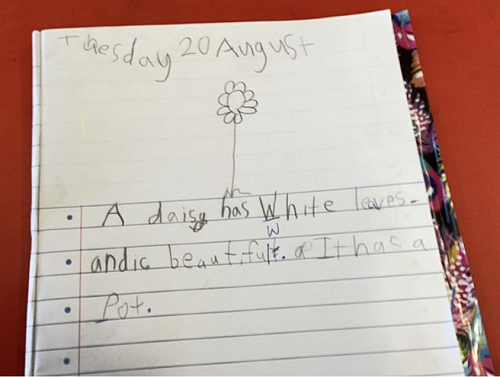 Tuesday 20 August
A daisy has White leaves.
w
andic beautiful. It has a
Pot.